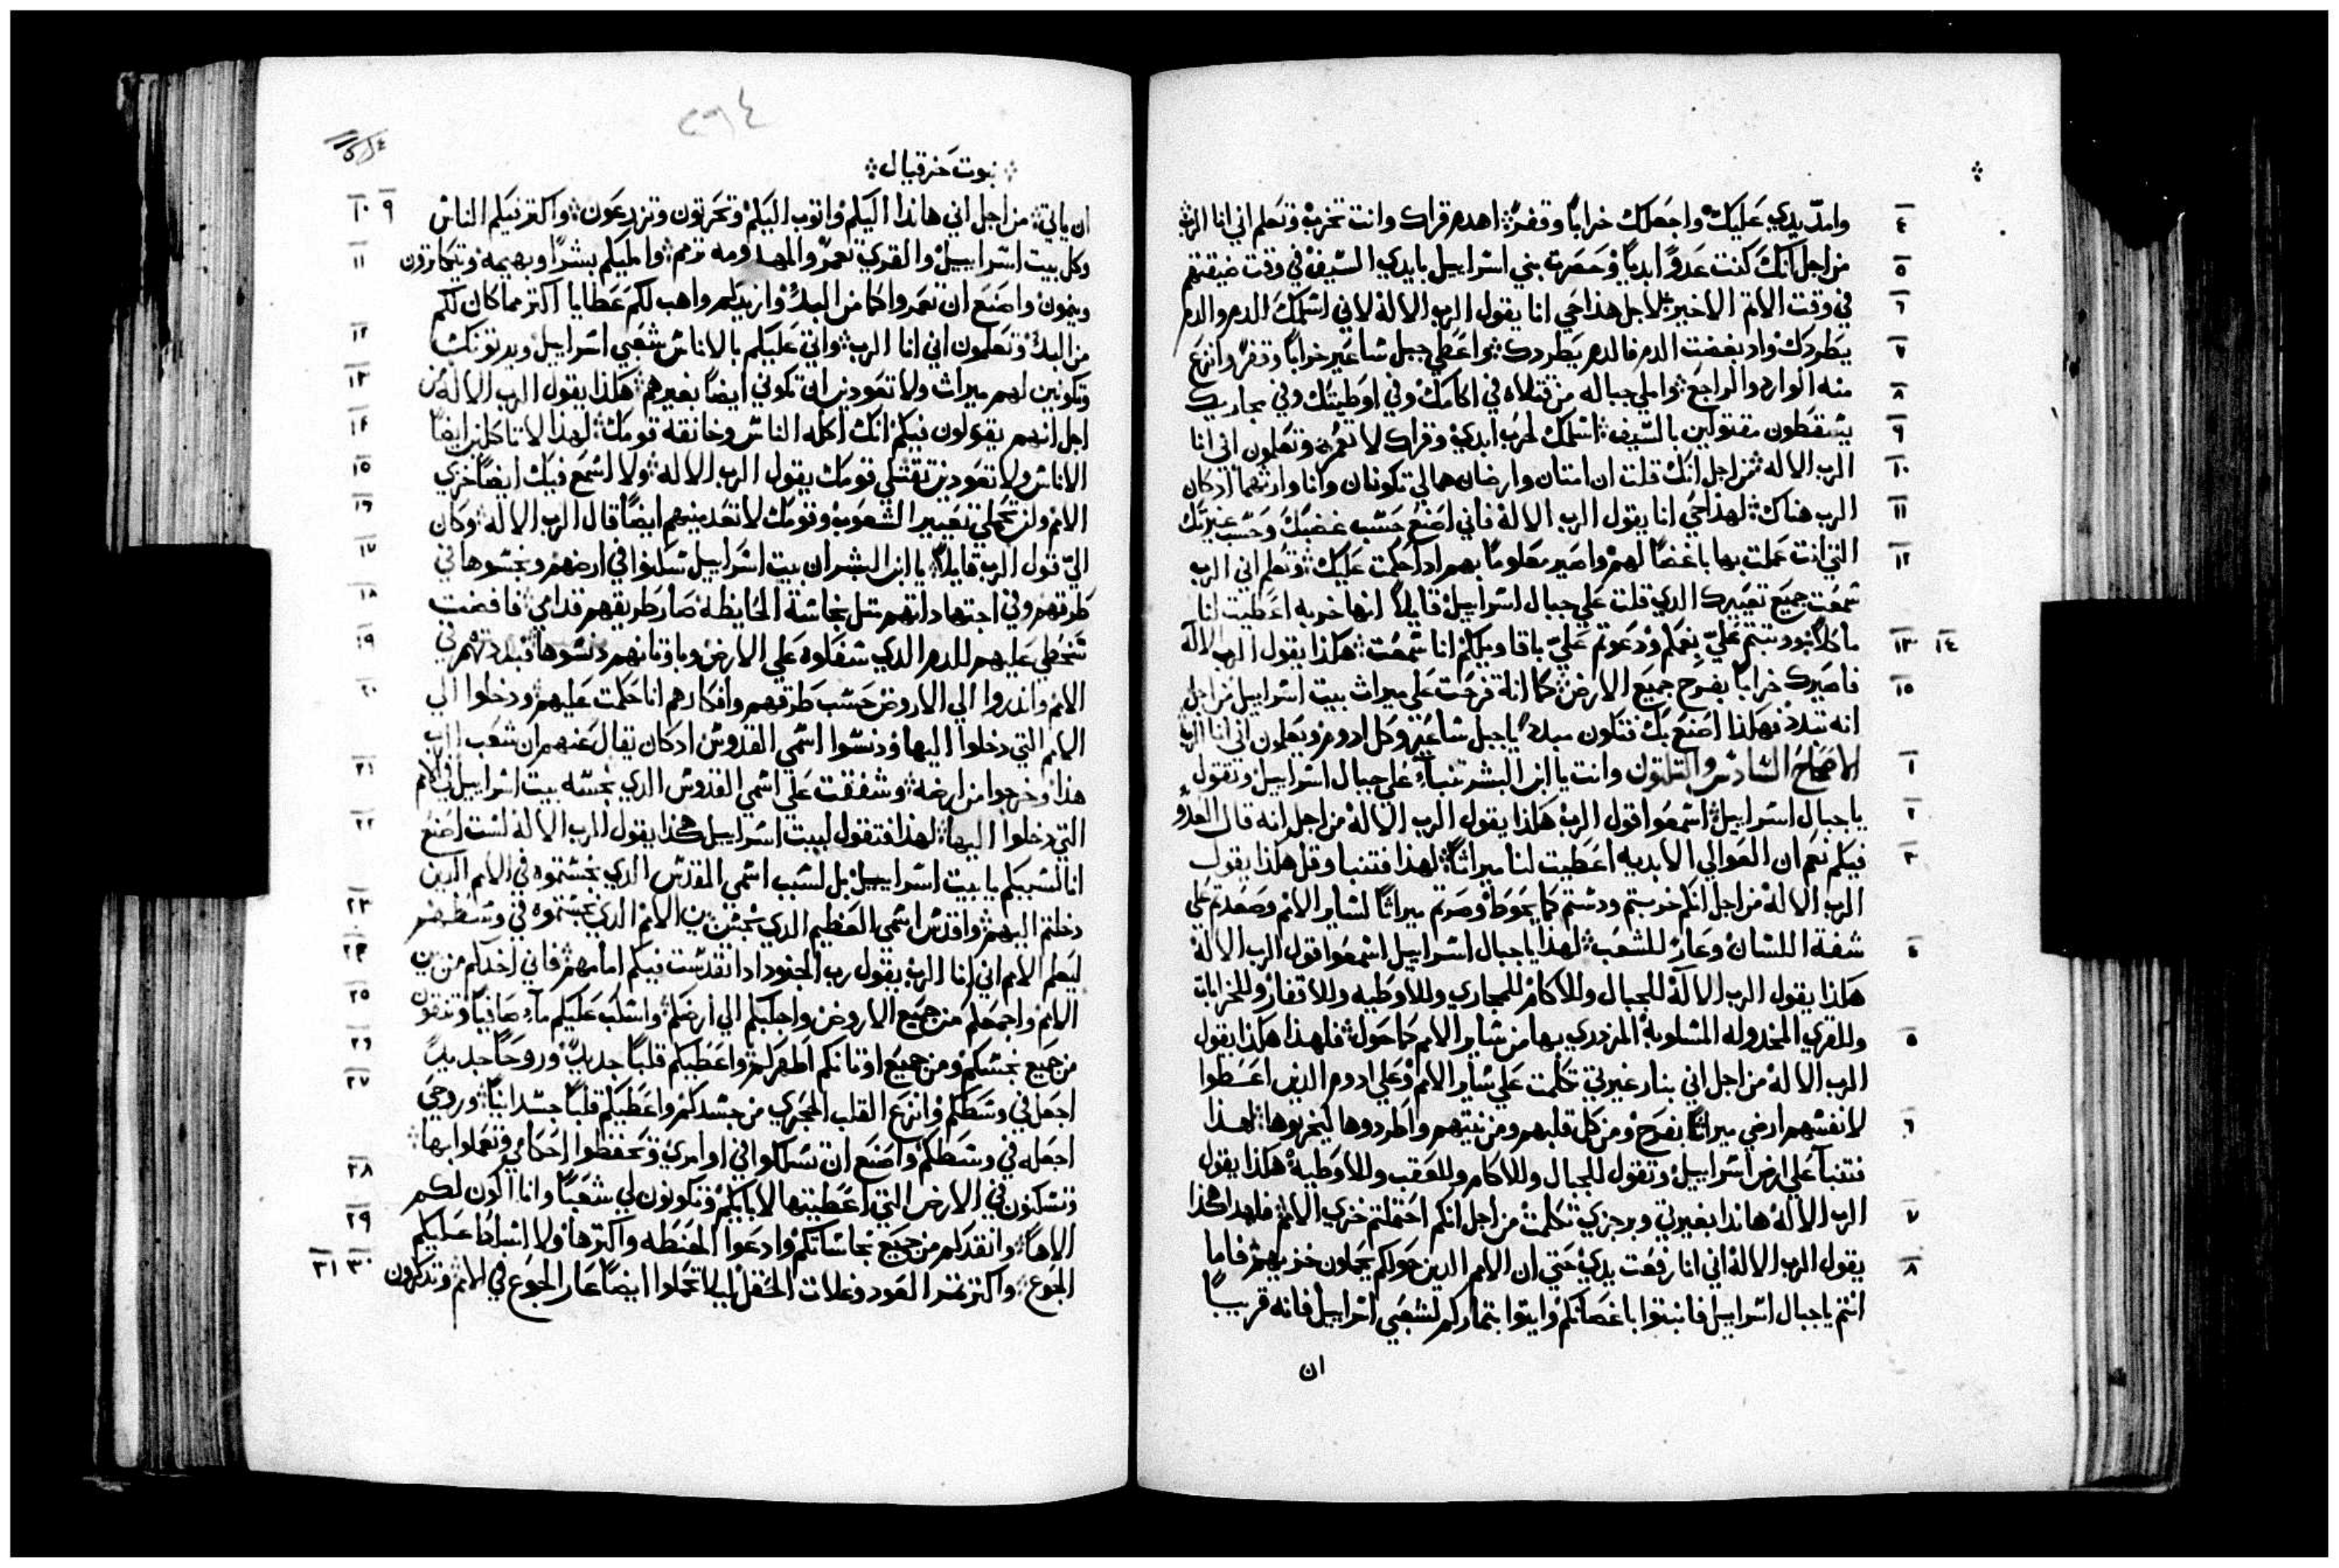 وامدّ يدي عليك واجعلك خراباً وقفرًا اهدم قراك وانت تخرب وتعلم اني انا الرب
٤
من اجل انك كنت عدوًّا ابديًّا وحصرت بني اسراييل بايدي السيف في وقت ضيقتهم
٥
في وقت الاثم الاخير لاجل هذا حي انا يقول الرب الاله لاني اسلمك الدم والدم
٦
يطردك واد بغضت الدم فالدم يطردك واعطي جبل ساعير خراباً وقفرا وانزع
٧
منه الوارد والراجع واملي جباله من قتلاه في اكامك وفي اوطيتك وفي مجاريك
٨
يسقطون مقتولين بالسيف اسلمك لخرب ابدي وقراك لا تعمر وتعلمون اني انا
٩
الرب الاله من اجل انك قلت ان امتان وارضان هما لي تكونان وانا وارثهما ادكان
١٠
الرب هناك لهذا حي انا يقول الرب الاله فاني اصنع حسب غضبك وحسب غيرتك
١١
التي انت عملت بها باغضاً لهم واصير معلومًا بهم ادا حكمت عليك وتعلم اني الرب
١٢
سمعت جميع تعييرك الدي قلت علي جبال اسراييل قايلاً انها خربه اعطيت لنا
ماكلاً وعظمتم عليّ بفمكم ودعوتم عليّ باقاويلكم انا سمعت هكذا يقول الرب الاله
١٣ ١٤
فاصيرك خراباً بفرح جميع الارض كما انك فرحت علي ميراث بيت اسراييل من اجل
١٥
انه تبدد فهكذا اصنع بك فتكون مبددًا يا جبل ساعير وكل ادوم ويعلمون اني انا الرب
الاصحاح السادس والثلثون وانت يا ابن البشر تنبأ علي جبال اسراييل وتقول
١
يا جبال اسراييل اسمعوا قول الرب هكذا يقول الرب الاله من اجل انه قال العدو
٢
فيكم نعم ان العوالي الابديه اعطيت لنا ميراثاً لهذا فتنبا وقل هكذا يقول
٣
الرب الاله من اجل انكم خربتم ودستم كما يحوط وصرتم ميراثاً لساير الامم وصعدتم علي
شفة اللسان وعار للشعب لهذا يا جبال اسراييل اسمعوا قول الرب الاله
٤
هكذا يقول الرب الاله للجبال وللاكام للمجاري وللاوطيه وللاقفار وللخرابات
وللقري المخدوله المسلوبة المزدري بها من ساير الامم كما حول فلهذا هكذا يقول
٥
الرب الاله من اجل اني بنار غيرتي تكلمت علي ساير الامم وعلي ادوم الذين اعطوا
لانفسهم ارضي ميراثاً بفرح ومن كل قلبهم ومن نيتهم واطردوها ليخربوها لهذا
٦
فتنبأ علي ارض اسراييل وتقول للجبال وللاكام وللعقب وللاوطية هكذا يقول
الرب الاله هاندا بغيرتي وبرجزي تكلمت من اجل انكم احتملتم خزي الامم فلهدا هكذا
٧
يقول الرب الاله اني انا رفعت يدي حتي ان الامم الدين حولكم يحملون خزيهم فاما
٨
انتم يا جبال اسراييل فانبتوا باغصانكم وايتوا بثماركم لشعبي اسراييل فانه قريباً
ان
٣٩٤
نبوت حزقيال
ان ياتي من اجل اني هاندا اليكم واتوب اليكم وتحرتون وتزدرعون واكتر فيكم الناس
٩ ١٠
وكل بيت اسراييل والقري تعمر والمهدومه ترم واملیكم بشرًا وبهيمة ويتكاثرون
١١
وينمون واصنع ان تعمروا كما من البدء وازيدكم واهب لكم عطايا اكتر مما كان لكم
من البدء وتعلمون اني انا الرب واتي عليكم بالاناس شعبي اسراييل ويرتونك
١٢
وتكونين لهم ميراث ولا تعودين ان تكوني ايضاً بغيرهم هكذا يقول الرب الاله من
١٣
اجل انهم يقولون فيكم انك اكله الناس وخانقة قومك لهذا لا تاكلين ايضاً
١٤
الاناس ولا تعودين تقتلي قومك يقول الرب الاله ولا اسمع فيك ايضاً خزي
١٥
الامم ولن تحملي تعيير الشعوب وقومك لا تعدمينهم ايضاً قال الرب الاله وكان
١٦
اليّ قول الرب قايلاً يا ابن البشر ان بيت اسراييل سكنوا في ارضهم ونجسوها في
١٧
طرقهم وفي اجتهاداتهم مثل نجاسة الحايظة صار طريقهم قدامي فافضت
١٨
سخطي عليهم للدم الدي سفكوه علي الارض وباوثانهم دنسوها فبددتهم في
١٩
الامم واندروا الي الاروض حسب طرقهم وافكارهم انا حكمت عليهم ودخلوا الي
٢٠
الامم التي دخلوا اليها ودنسوا اسمي القدوس ادكان يقال عنهم ان شعب الرب
هذا وخرجوا من ارضه وشفقت علي اسمي القدوس الدي نجسه بيت اسراييل في الامم
٢١
التي دخلوا اليها لهذا فتقول لبيت اسراييل هكذا يقول الرب الاله لست اصنع
٢٢
انا لسببكم يا بيت اسراييل بل لسبب اسمي المقدس الدي نجستموه في الامم الدين
دخلتم اليهم واقدس اسمي العظيم الدي نجس بين الامم الدي نجستموه في وسطهم
٢٣
ليعلم الامم اني انا الرب يقول رب الجنود ادا تقدست فيكم امامهم فاني اخدكم من بين
٢٤
الامم واجمعكم من جميع الاروض واجلبكم الي ارضكم واسكب عليكم ماءً صافياً وتنقون
٢٥
من جميع نجسكم ومن جميع اوتانكم اطهركم واعطيكم قلبًا جديدًا وروحاً جديدً
٢٦
اجعل في وسطكم وانزع القلب الحجري من جسدكم واعطيكم قلبًا جسدانيًا وروحي
٢٧
اجعله في وسطكم واصنع ان تسلكوا في اوامري وتحفظوا احكامي وتعملوا بها
وتسكنون في الارض التي اعطيتها لابايكم وتكونون لي شعباً وانا اكون لكم
٢٨
الاهاً وانقدكم من جميع نجاساتكم وادعوا الحنطه واكترها ولا اسلط عليكم
٢٩
الجوع واكتر ثمر العود وغلات الحقل ليلا تحملوا ايضاً عار الجوع في الامم وتدكرون
٣٠ ٣١